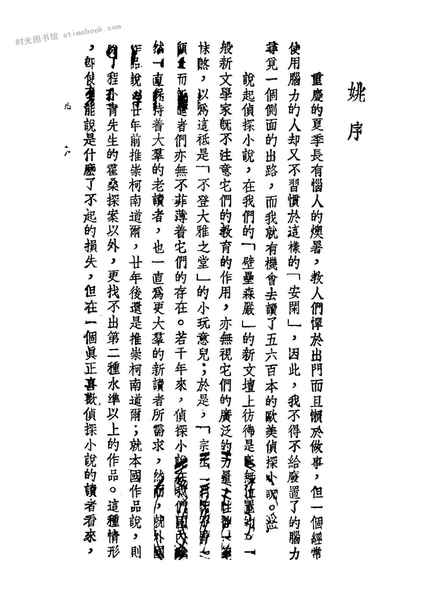 时光图书馆 atimebook.com
姚序
重慶的夏季長有惱人的燠暑，敎人們憚於出門而且懶於做事，但一個經常
使用腦力的人却又不習慣於這樣的「安閑」，因此，我不得不給廢置了的腦力
尋覓一個側面的出路，而我就有機會去讀了五六百本的歐美偵探小說。
說起偵探小說，在我們的「壁壘森嚴」的新文壇上彷彿是毫無位置的。一
般新文學家旣不注意它們的敎育的作用，亦無視它們的廣泛的力量，往往一
抹煞，以爲這祇是「不登大雅之堂」的小玩意兒；於是，「宗
而 者們亦無不菲薄着它們的存在。若干年來，偵探小說在我們國內
然一直保持着大羣的老讀者，也一直爲更大羣的新讀者所需求，然而，就外國
作品說，廿年前推崇柯南道爾，廿年後還是推崇柯南道爾；就本國作品說，則
除了程小青先生的霍桑探案以外，更找不出第二種水準以上的作品。這種情形
，卽使不能說是什麽了不起的損失，但在一個眞正喜歡偵探小說的讀者看來，